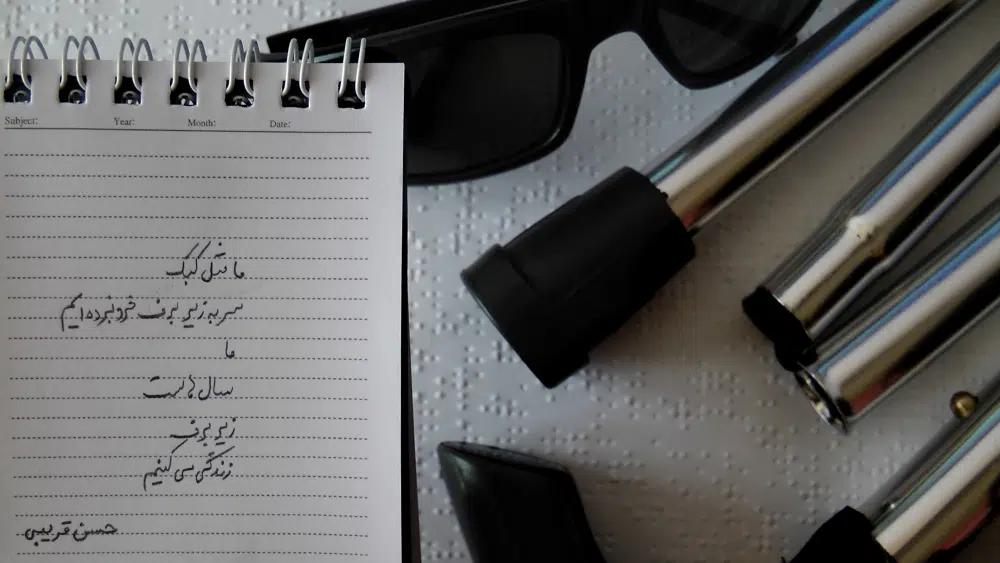 Subject: Year: Month: Date:
ما مثل کبک
سر به زیر برف فرو نبرده ایم
ما
سال هاست
زیر برف
زندگی می کنیم
حسن قریبی